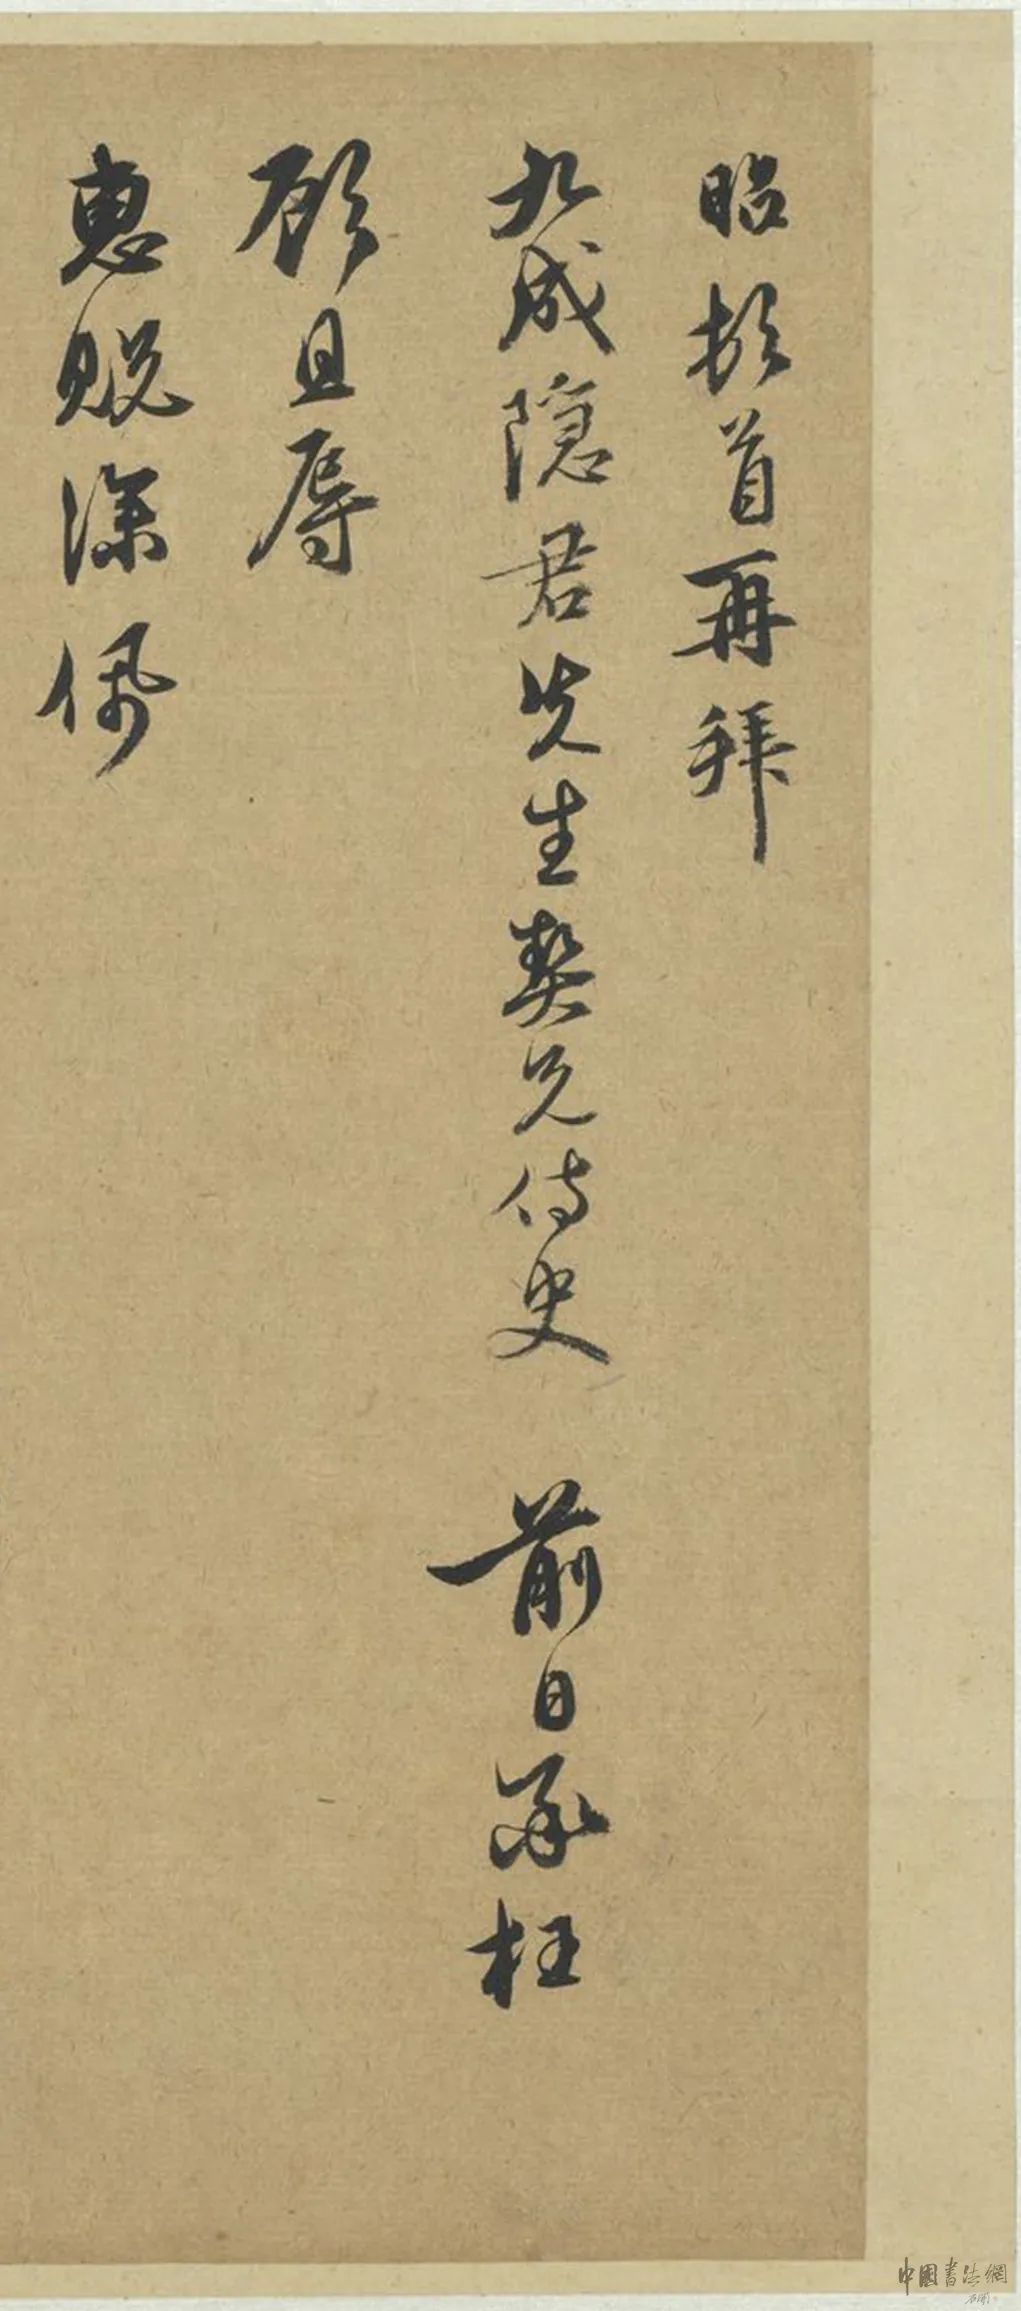 昭頓首再拜
九成隱君先生契兄侍史 前日承枉
顧且辱
惠貺深佩
中國書法網